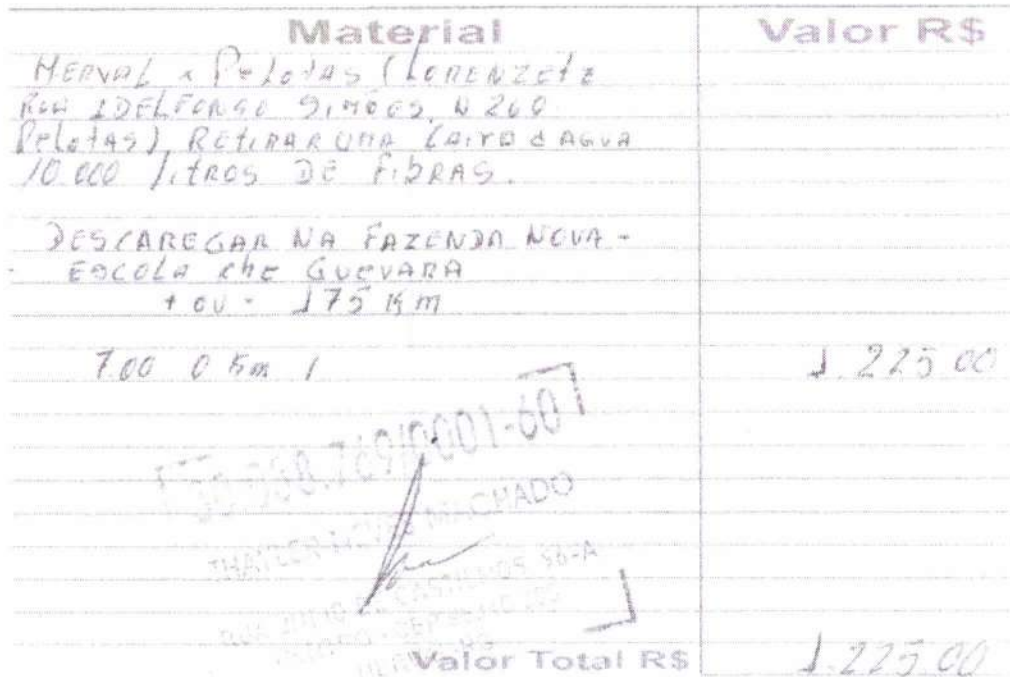 Material Valor R$
HERVAL x PeLotAS (LORENZEtE
RUA IDELFONSO SIMÕES, N 260
PeLotAS), REtiRAR UMA CAiXA d AGUA
10.000 LitROS DE FiBRAS.
DESCAREGAR NA FAZENDA NOVA -
ESCOLA Che GUEVARA
+ OU - 175 Km
7.00 O Km / 1.225.00
.769/0001-60
MACHADO
96-A
Valor Total R$ 1.225.00